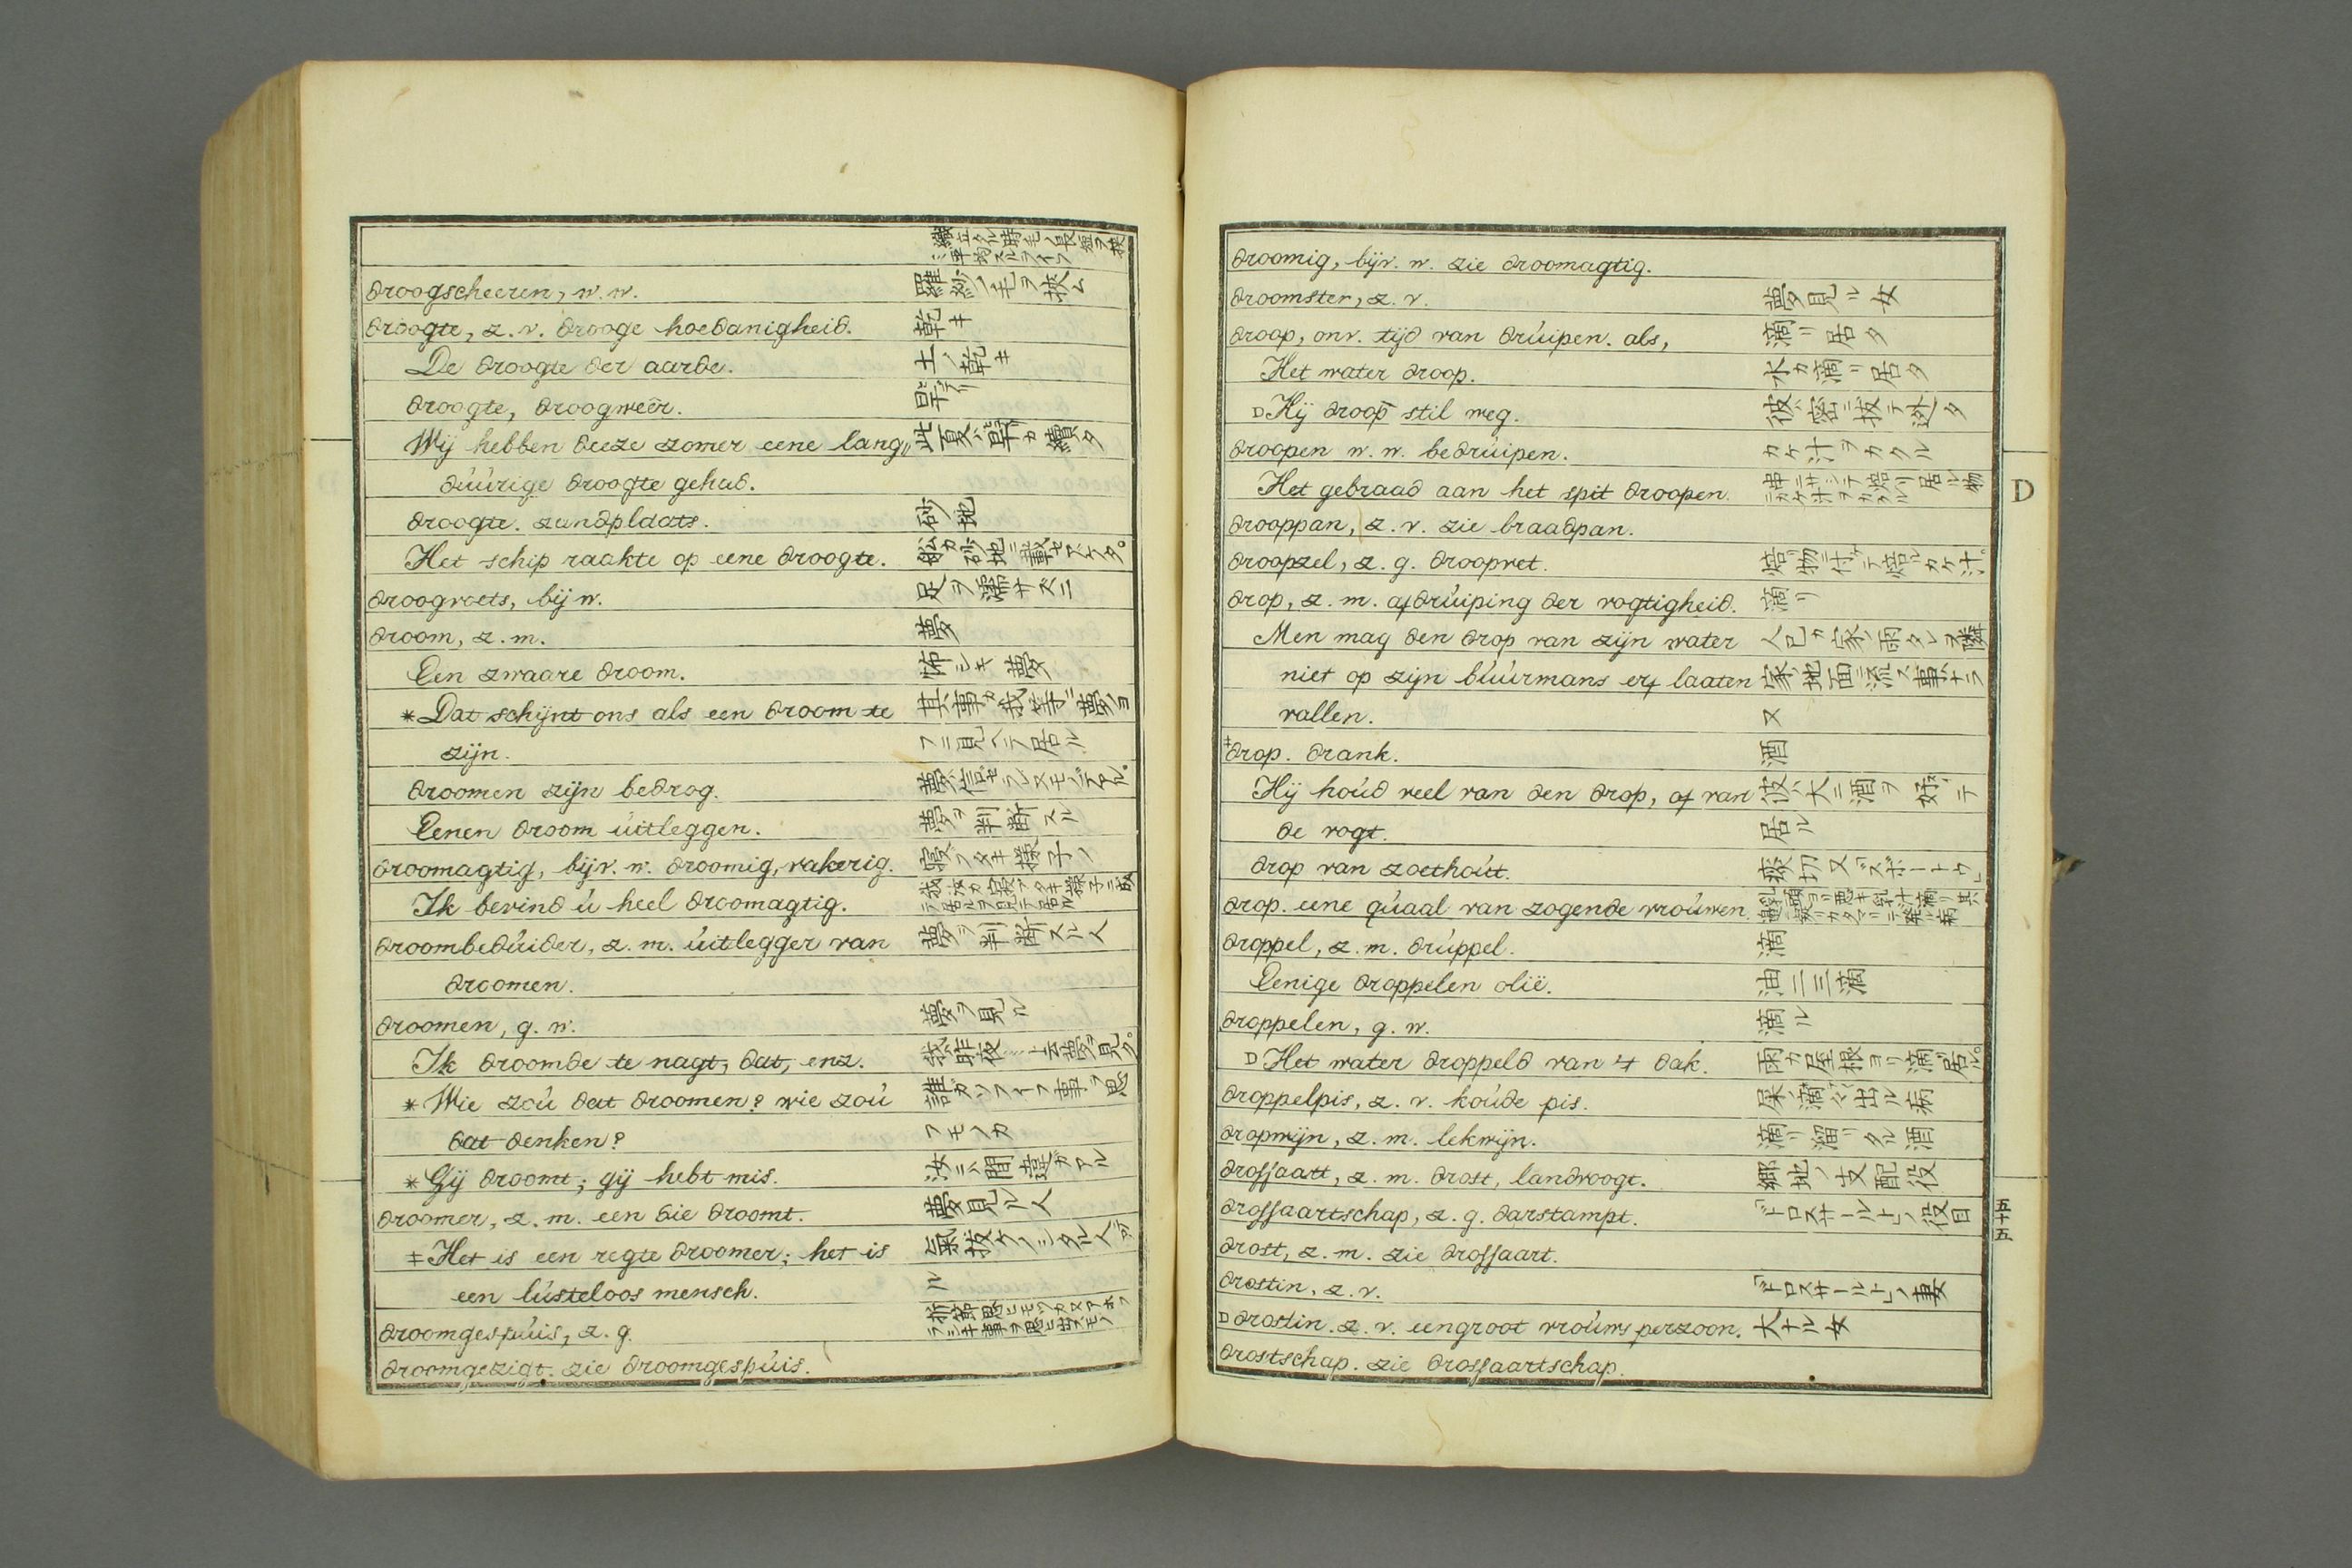 droogscheeren, w.w. 羅紗ノ毛ヲ挾ム
droogte, z.v. drooge hoedanigheid. 乾キ
De droogte der aarde. 土ノ乾キ
droogte, droogweêr. 旱
Wij hebben deeze zomer eene lang〃 此夏ハ旱カ續タ
düúrige droogte gehad.
droogte. zandplaats. 砂地
Het schip raakte op eene droogte. 舩カ砂地ニ載セアケタ。
droogvoets, bij w. 足ヲ濡サズニ
droom, z.m. 夢
Een zwaare droom. 怖シキ夢
*Dat schijnt ons als een droom te 其事カ我等ニ夢ノヨ
zijn. フニ見ヘテ居ル
droomen zijn bedrog. 夢ハ信セラレヌモノデアル。
Eenen droom úitleggen. 夢ヲ判断スル
droomagtig, bijv. w. droomig, vakerig. 寝フタキ様子ノ
Ik bevind ú heel droomagtig.
droombedúider, z.m. úitlegger van 夢ヲ判断スル人
droomen.
droomen, g.w. 夢ヲ見ル
Ik droomde te nagt, dat, enz. 我昨夜…ト云夢ヲ見タ。
*Wie zoú dat droomen? wie zoú 誰カソフイフ事ヲ思
dat denken? フモノカ
*Gij droomt; gij hebt mis. 汝ニハ間違ガアル
droomer, z.m. een die droomt. 夢見ル人
‡Het is een regte droomer; het is 氣抜ケノシタル人デア
een lústeloos mensch. ル
droomgespúis, z.g.
droomgezigt. zie droomgespúis.
droomig, bijv. w. zie droomagtig.
droomster, z.v. 夢見ル女
droop, onv. tijd van drúipen. als, 滴リ居タ
Het water droop. 水カ滴リ居タ
D Hij droop stil weg. 彼ハ密ニ抜テ逃タ
droopen w.w. bedrúipen. カケ汁ヲカクル
Het gebraad aan het spit droopen. 串ニサシテ焙リ居ル物ニカケ汁ヲカクル
drooppan, z.v. zie braadpan.
droopzel, z.g. droopvet. 焙リ物ニ付ケテ焙ルカケ汁。
drop, z.m. afdrúiping der vogtigheid. 滴リ
Men mag den drop van zijn water 人己カ家ノ雨タレヲ隣
niet op zijn búúrmans erf laaten 家ノ地面ニ流ス事ハナラ
vallen. ヌ
‡drop. drank. 酒
Hij hoúd veel van den drop, of van 彼ハ大ニ酒ヲ好テ
de vogt. 居ル
drop van zoethoút. 痰切又「ズボートウ」
drop. eene qúaal van zogende vroúwen.
droppel, z.m. drúppel. 滴
Eenige droppelen olië. 油二三滴
droppelen, g.w. 滴ル
D Het water droppeld van 't dak. 雨カ屋根ヨリ滴リ居ル。
droppelpis, z.v. koúde pis. 尿ノ滴々出ル病
dropwijn, z.m. lekwijn. 滴リ溜リタル酒
drossaart, z.m. drost, landvoogt. 郷地ノ支配役
drossaartschap, z.g. darstampt. 「ドロスサールト」ノ役目
drost, z.m. zie drossaart.
drostin, z.v. 「ドロスサールト」ノ妻
D drostin. z.v. een groot vroúws perzoon. 大ナル女
drostschap. zie drossaartschap.
D
五十五